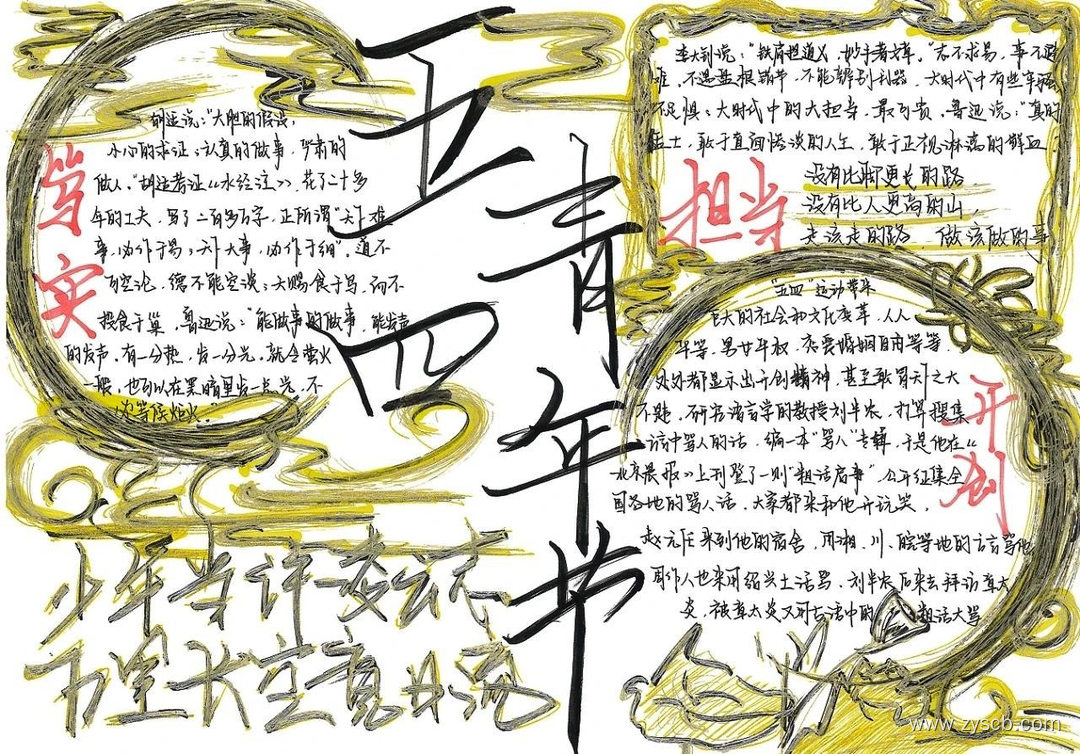 五四青年节
务实
胡适说："大胆的假设，
小心的求证；认真的做事，严肃的
做人。"胡适考证《水经注》，花了二十多
年的工夫，写了二百多万字，正所谓"天下难
事，必作于易；天下大事，必作于细"。道不
可空论，德不能空谈；大鹏食于鸟，而不
投食于巢，鲁迅说："能做事的做事，能发声
的发声，有一分热，发一分光，就会萤火
一般，也可以在黑暗里发一点光，不
必等候炬火。
担当
李大钊说："铁肩担道义，妙手著文章。"志不求易，事不避
难，不遇盘根错节，不能辨别利器，大时代中有些牢骚
不足惧；大时代中的大担当，最可贵，鲁迅说："真的
猛士，敢于直面惨淡的人生，敢于正视淋漓的鲜血
没有比脚更长的路
没有比人更高的山，
走该走的路 做该做的事
开创
"五四"运动带来
巨大的社会和文化变革，人人
平等，男女平权，恋爱婚姻自由等等，
处处都显示出开创精神，甚至敢冒天之大
不韪，研究语言学的教授刘半农，打算搜集
话中骂人的话，编一本"骂人"专辑，于是他在《
北京晨报》上刊登了一则"粗话启事"，公开征集全
国各地的骂人话，大家都来和他开玩笑，
赵元任来到他的宿舍，用湘、川、皖等地的方言骂他
周作人也来用绍兴土话骂，刘半农后来去拜访章太
炎，被章太炎又用古话中的 粗话大骂
少年当许凌云志
万里长空竞风流
www.zyscb.com